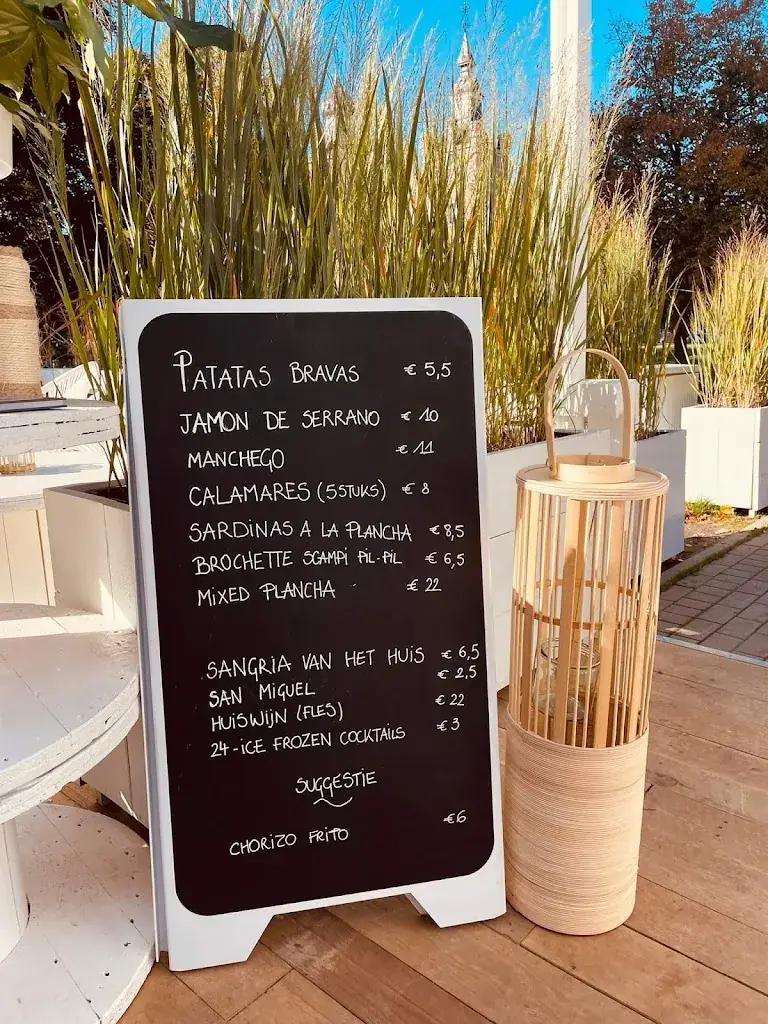 PATATAS BRAVAS € 5,5
JAMON DE SERRANO € 10
MANCHEGO € 11
CALAMARES (5STUKS) € 8
SARDINAS A LA PLANCHA € 8,5
BROCHETTE SCAMPI PIL-PIL € 6,5
MIXED PLANCHA € 22
SANGRIA VAN HET HUIS € 6,5
SAN MIGUEL € 2,5
HUISWIJN (FLES) € 22
24-ICE FROZEN COCKTAILS € 3
SUGGESTIE
CHORIZO FRITO €6